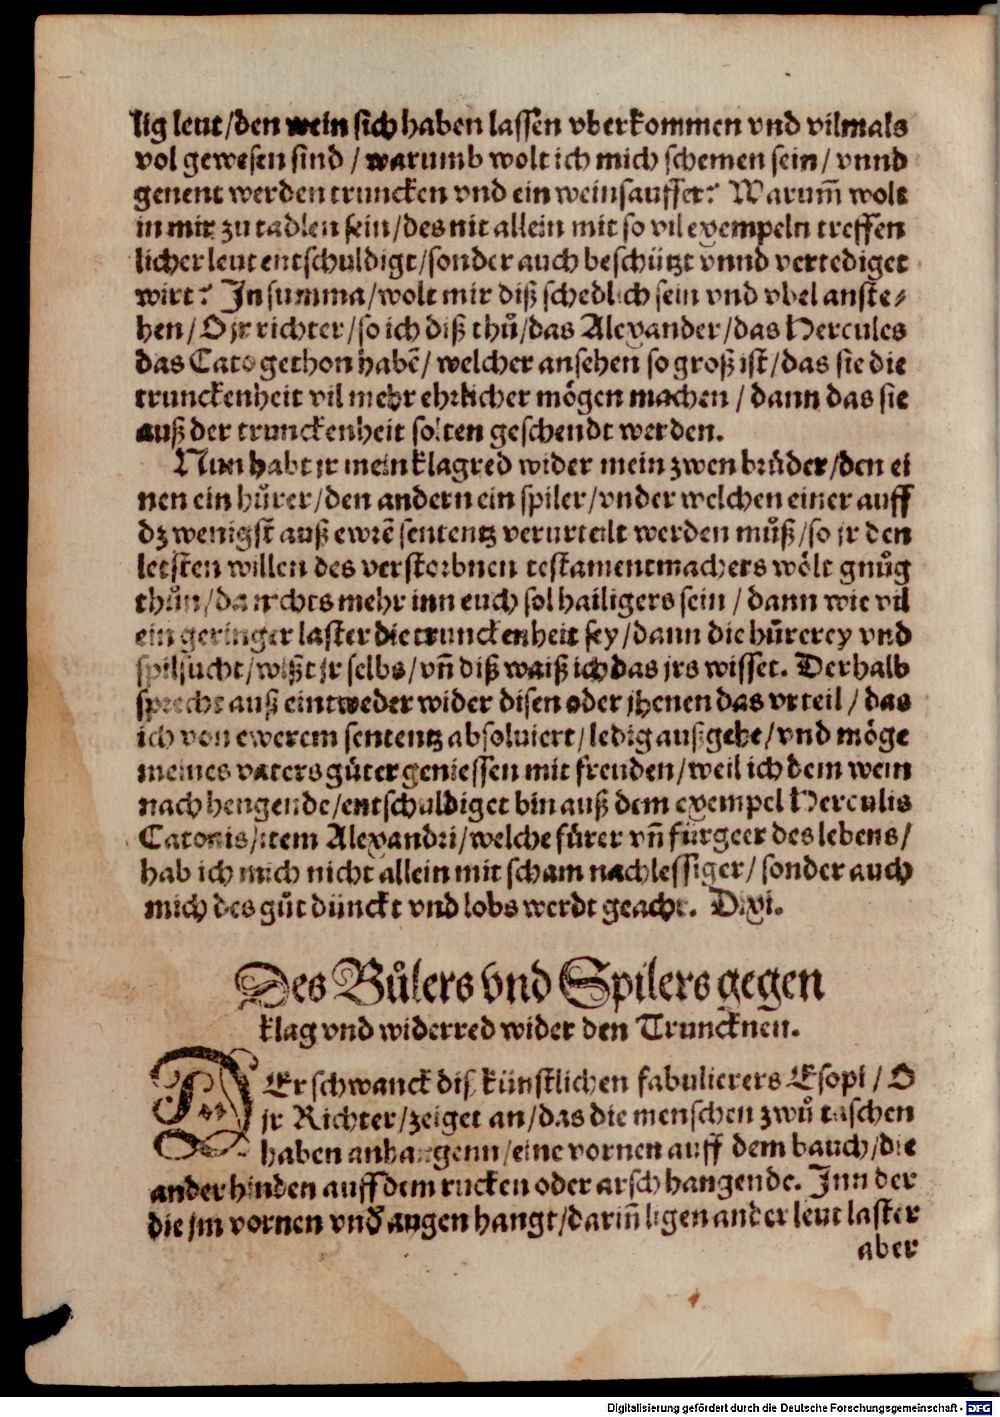 lig leut/den wein sich haben lassen vberkommen vnd vilmals
vol gewesen sind / warumb wolt ich mich schemen sein / vnnd
genent werden truncken vnd ein weinsauffer? Warum̃ wolt
in mir zu tadlen sein/des nit allein mit so vil exempeln treffen
licher leut entschuldigt/sonder auch beschützt vnnd vertediget
wirt? In summa/wolt mir diß schedlich sein vnd vbel anste-
hen/O jr richter/so ich diß thů/das Alexander/das Hercules
das Cato gethon habẽ/ welcher ansehen so groß ist/das sie die
trunckenheit vil mehr ehrlicher mögen machen / dann das sie
auß der trunckenheit solten geschendt werden.
Nun habt jr mein klagred wider mein zwen brüder/den ei
nen ein hůrer/den andern ein spiler/vnder welchen einer auff
dz wenigst̃ auß ewrẽ sententz verurteilt werden můß/so jr den
letsten willen des verstorbnen testamentmachers wölt gnůg
thůn/da nichts mehr inn euch sol hailigers sein / dann wie vil
ein geringer laster die trunckenheit sey/dann die hůrerey vnd
spilsucht/wißt jr selbs/vñ diß waiß ich das jrs wisset. Derhalb
spreche auß eintweder wider disen oder jhenen das vrteil / das
ich von ewerem sententz absoluiert/ledig außgehe/vnd möge
meines vaters güter geniessen mit freuden/weil ich dem wein
nachhengende/entschuldiget bin auß dem exempel Herculis
Catonis/item Alexandri/welche fürer vñ fürgeer des lebens/
hab ich mich nicht allein mit scham nachlessiger/ sonder auch
mich des gůt dünckt vnd lobs werdt geacht. Dixi.
Des Bůlers vnd Spilers gegen
klag vnd widerred wider den Truncknen.
DEr schwanck dis künstlichen fabulierers Esopi / O
jr Richter/zeiget an/das die menschen zwů taschen
haben anhangenn/eine vornen auff dem bauch/die
ander hinden auff dem rucken oder arsch hangende. Inn der
die jm vornen vnd augen hangt/dariñ ligen ander leut laster
aber
Digitalisierung gefördert durch die Deutsche Forschungsgemeinschaft - DFG